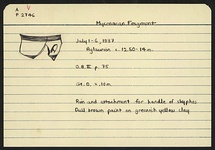 A
P 2746
Mycenaean Fragment
July 1-6, 1937
c. 12.50-14 m.
p. 75
Rim and attachment for handle of skyphos
Dull brown paint on greenish yellow clay